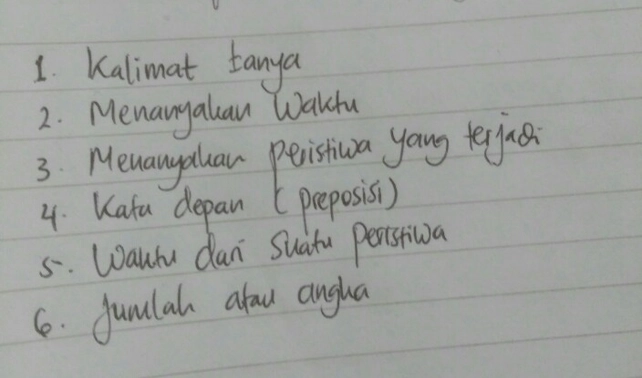 1. Kalimat tanya
2. Menanyakan Waktu
3. Menanyakan peristiwa yang terjadi
4. Kata depan (preposisi)
5. Waktu dari Suatu peristiwa
6. Jumlah atau angka